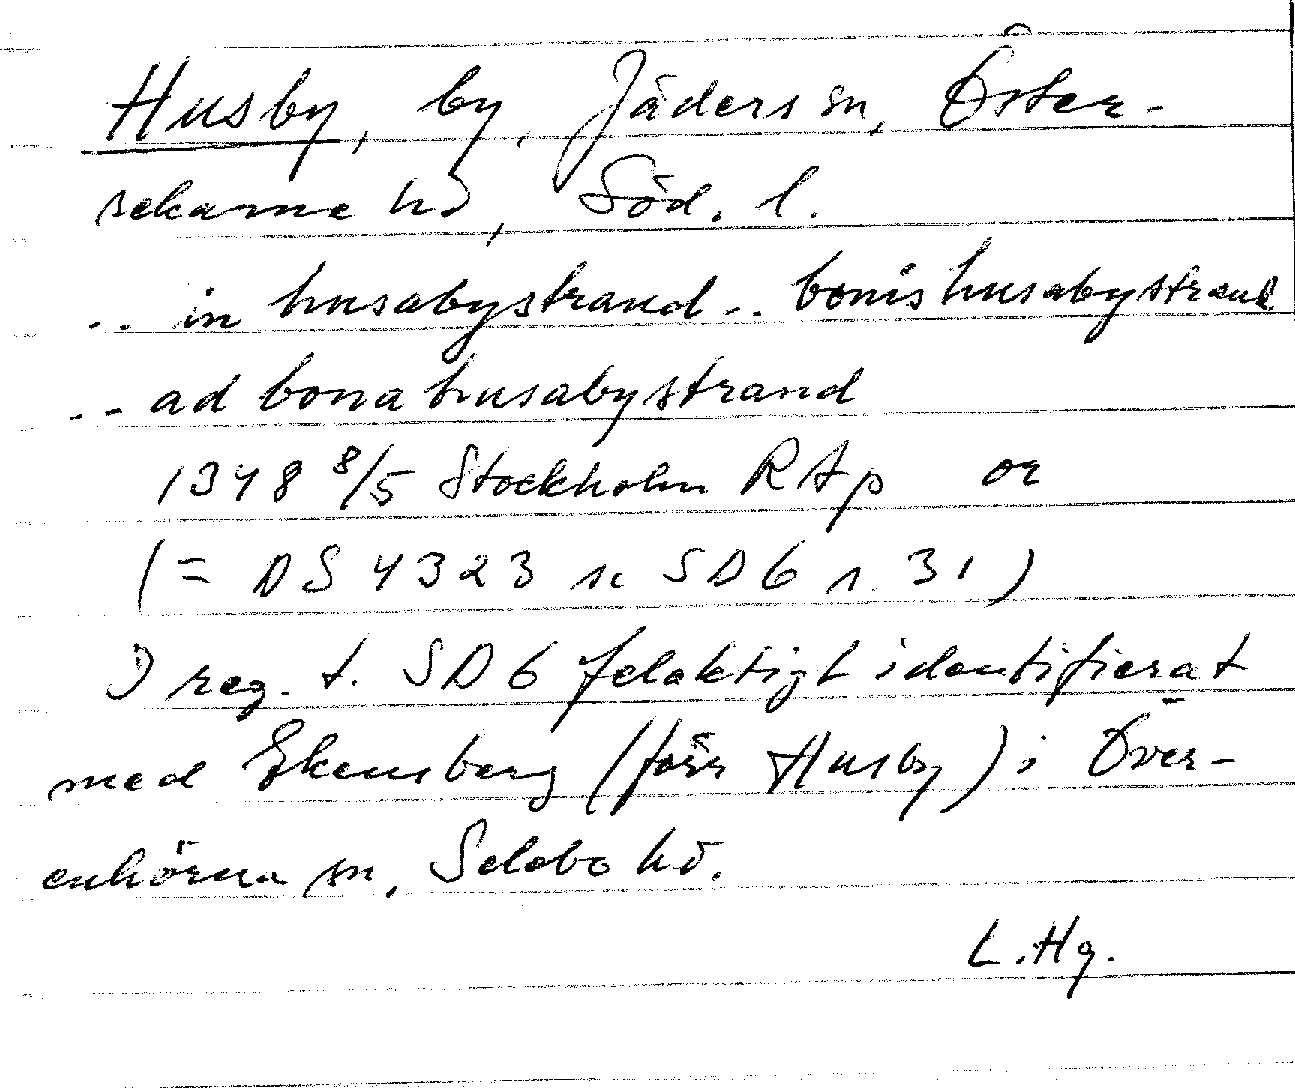 Husby, by, Jäders sn, Öster-
rekarne hd, Söd. l.
.. in husabystrand .. bonis husabystrand
.. ad bona husabystrand
1348 8/5 Stockholm RAp or
(= DS 4323 o. SD 6 s. 31)
I reg. t. SD 6 felaktigt identifierat
med Ekensberg (förr Husby) i Över-
enhörna sn, Selebo hd.
L. Hg.